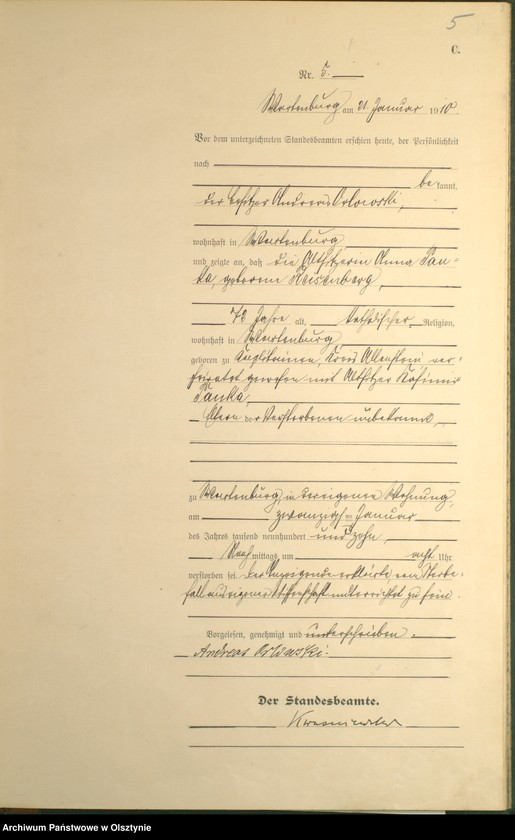 5
C.
Nr. 5.
Wartenburg am 21. Januar 1910
Vor dem unterzeichneten Standesbeamten erschien heute, der Persönlichkeit
nach
bekannt,
der Besitzer Andreas Orlowski,
wohnhaft in Wartenburg
und zeigte an, daß die Altsitzerin Anna Pan-
ka, geborene Weisenberg,
72 Jahre alt, katholischer Religion,
wohnhaft in Wartenburg
geboren zu Kreis Allenstein, ver-
heiratet gewesen mit Altsitzer Kasimir
Panka,
Eltern der Verstorbenen unbekannt,
zu Wartenburg, in der eigenen Wohnung,
am zwanzigsten Januar
des Jahres tausend neunhundert und zehn,
Nachmittags um acht Uhr
verstorben sei. Der Anzeigende erklärte vom Sterbe-
fall aus eigener Wissenschaft unterrichtet zu sein.
Vorgelesen, genehmigt und unterschrieben.
Andreas Orlowski.
Der Standesbeamte.
Archiwum Państwowe w Olsztynie